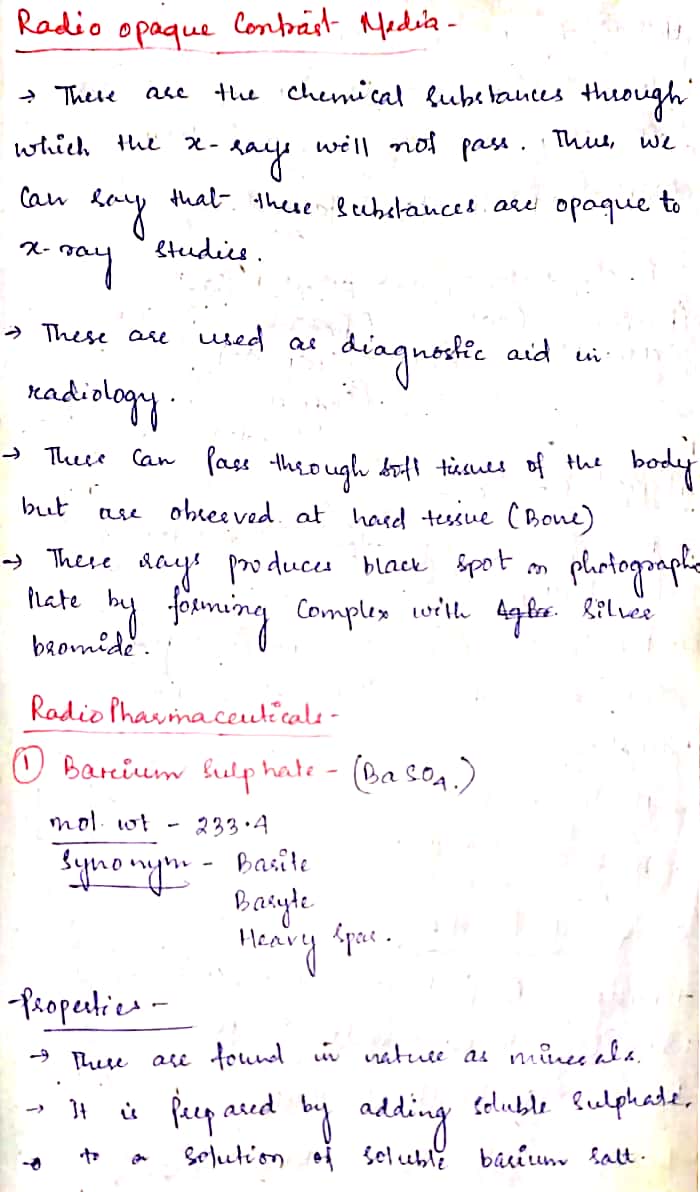 Radio opaque Contrast Media -
→ These are the chemical substances through
which the x-rays will not pass. Thus, we
can say that these substances are opaque to
x-ray studies.
→ These are used as diagnostic aid in
radiology.
→ These can pass through soft tissues of the body
but are observed at hard tessue (Bone)
→ These rays produces black spot on photographic
Plate by forming Complex with AgBr. Silver
bromide.
Radio Pharmaceuticals -
① Barium Sulphate - (BaSO4.)
mol. wt - 233.4
Synonym - Barite
Baryte
Heavy spar.
Properties -
→ These are found in nature as minerals.
→ It is prepared by adding soluble sulphate.
→ to a solution of soluble barium salt.